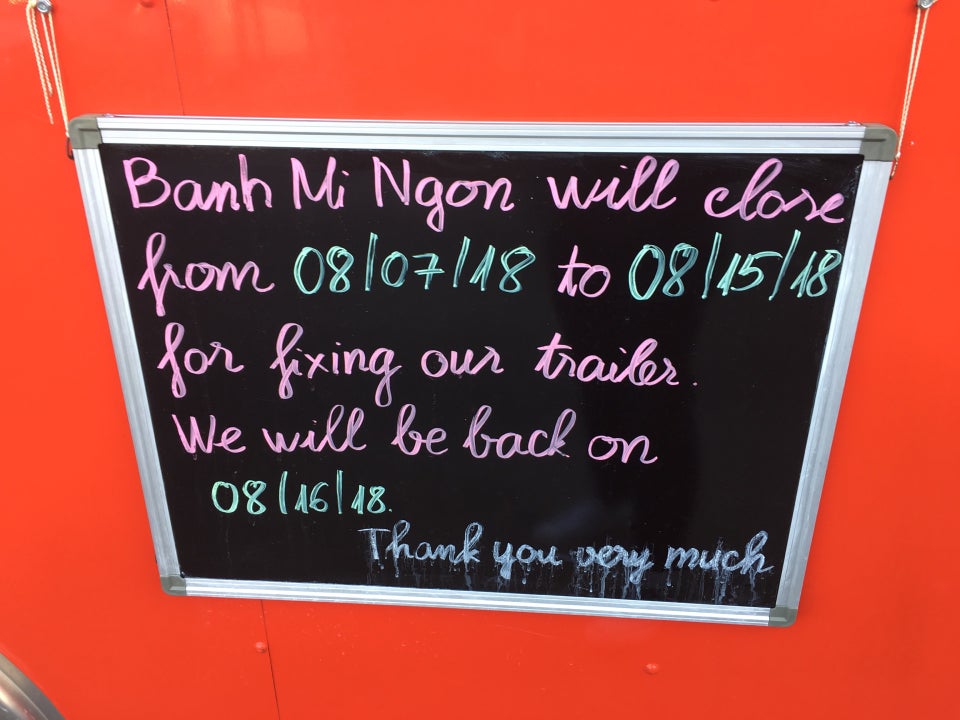 Banh Mi Ngon will close
from 08/07/18 to 08/15/18
for fixing our trailer.
We will be back on
08/16/18.
Thank you very much